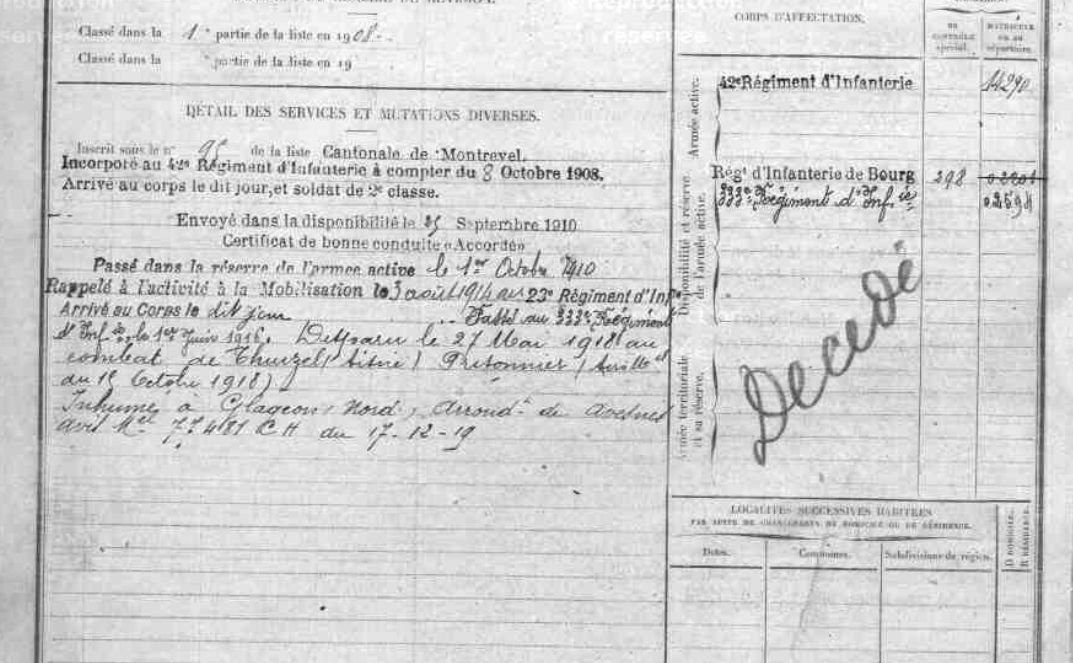 Classé dans la 1e partie de la liste en 1908.
Classé dans la e partie de la liste en 19
DÉTAIL DES SERVICES ET MUTATIONS DIVERSES.
Inscrit sous le n° 95 de la liste Cantonale de Montrevel.
Incorporé au 42e Régiment d'Infanterie à compter du 8 Octobre 1908.
Arrivé au corps le dit jour, et soldat de 2e classe.
Envoyé dans la disponibilité le 25 Septembre 1910
Certificat de bonne conduite « Accordé »
Passé dans la réserve de l'armee active le 1er Octobre 1910
Rappelé à l'activité à la Mobilisation le 3 août 1914 au 23e Régiment d'Infie
Arrivé au Corps le dit jour Passé au 333e Régiment
d'Infie le 1er Juin 1916. Disparu le 27 Mai 1918 au
combat de (Aisne) Prisonnier
du 15 Octobre 1918)
Inhumé à Glageon, Nord, Arrondt de Avesnes
avis Mel 77481 C.H du 17-12-19
CORPS D'AFFECTATION.
NUMÉROS
DU CONTRÔLE spécial.
MATRICULE ou au répertoire.
Armée active.
42e Régiment d'Infanterie
14290
Disponibilité et réserve de l'armée active.
Régt d'Infanterie de Bourg 298
333e Régiment d'Infie 02598
Armée territoriale et sa réserve.
Décédé
LOCALITÉS SUCCESSIVES HABITÉES
PAR SUITE DE CHANGEMENTS DE DOMICILE OU DE RÉSIDENCE.
Dates.
Communes.
Subdivisions de région.
D DOMICILE.
R RÉSIDENCE.